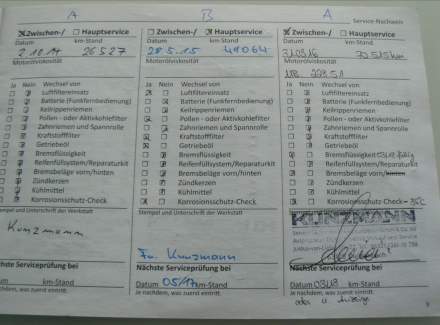 A
B
A
Service-Nachweis
Zwischen-/ Hauptservice
Datum km-Stand
2.10.14 26527
Motorölviskosität
Ja Nein Wechsel von
Luftfiltereinsatz
Batterie (Funkfernbedienung)
Keilrippenriemen
Pollen - oder Aktivkohlefilter
Zahnriemen und Spannrolle
Kraftstofffilter
Getriebeöl
Bremsflüssigkeit
Reifenfüllsystem/Reparaturkit
Bremsbeläge vorn/hinten
Zündkerzen
Kühlmittel
Korrosionsschutz-Check
Stempel und Unterschrift der Werkstatt
Kunzmann
Nächste Serviceprüfung bei
Datum km-Stand
Je nachdem, was zuerst eintritt.
Zwischen-/ Hauptservice
Datum km-Stand
28.5.15 49064
Motorölviskosität
Ja Nein Wechsel von
Luftfiltereinsatz
Batterie (Funkfernbedienung)
Keilrippenriemen
Pollen - oder Aktivkohlefilter
Zahnriemen und Spannrolle
Kraftstofffilter
Getriebeöl
Bremsflüssigkeit
Reifenfüllsystem/Reparaturkit
Bremsbeläge vorn/hinten
Zündkerzen
Kühlmittel
Korrosionsschutz-Check
Stempel und Unterschrift der Werkstatt
Fa. Kunzmann
Nächste Serviceprüfung bei
Datum 05/17 km-Stand
Je nachdem, was zuerst eintritt.
Zwischen-/ Hauptservice
Datum km-Stand
Motorölviskosität
229.51
Ja Nein Wechsel von
Luftfiltereinsatz
Batterie (Funkfernbedienung)
Keilrippenriemen
Pollen - oder Aktivkohlefilter
Zahnriemen und Spannrolle
Kraftstofffilter
Getriebeöl
Bremsflüssigkeit
Reifenfüllsystem/Reparaturkit
Bremsbeläge vorn/hinten
Zündkerzen
Kühlmittel
Korrosionsschutz-Check
KUNZMANN
Nächste Serviceprüfung bei
Datum km-Stand
Je nachdem, was zuerst eintritt.